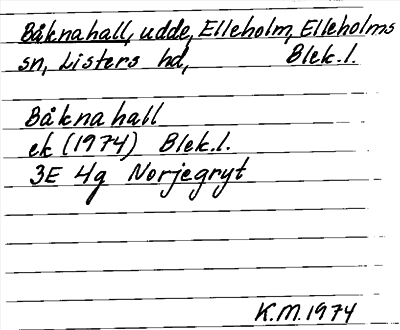 Båknahall, udde, Elleholm, Elleholms
sn, Listers hd, Blek.l.
Båknahall
ek (1974) Blek.l.
3E 4g Norjegryt
K.M. 1974